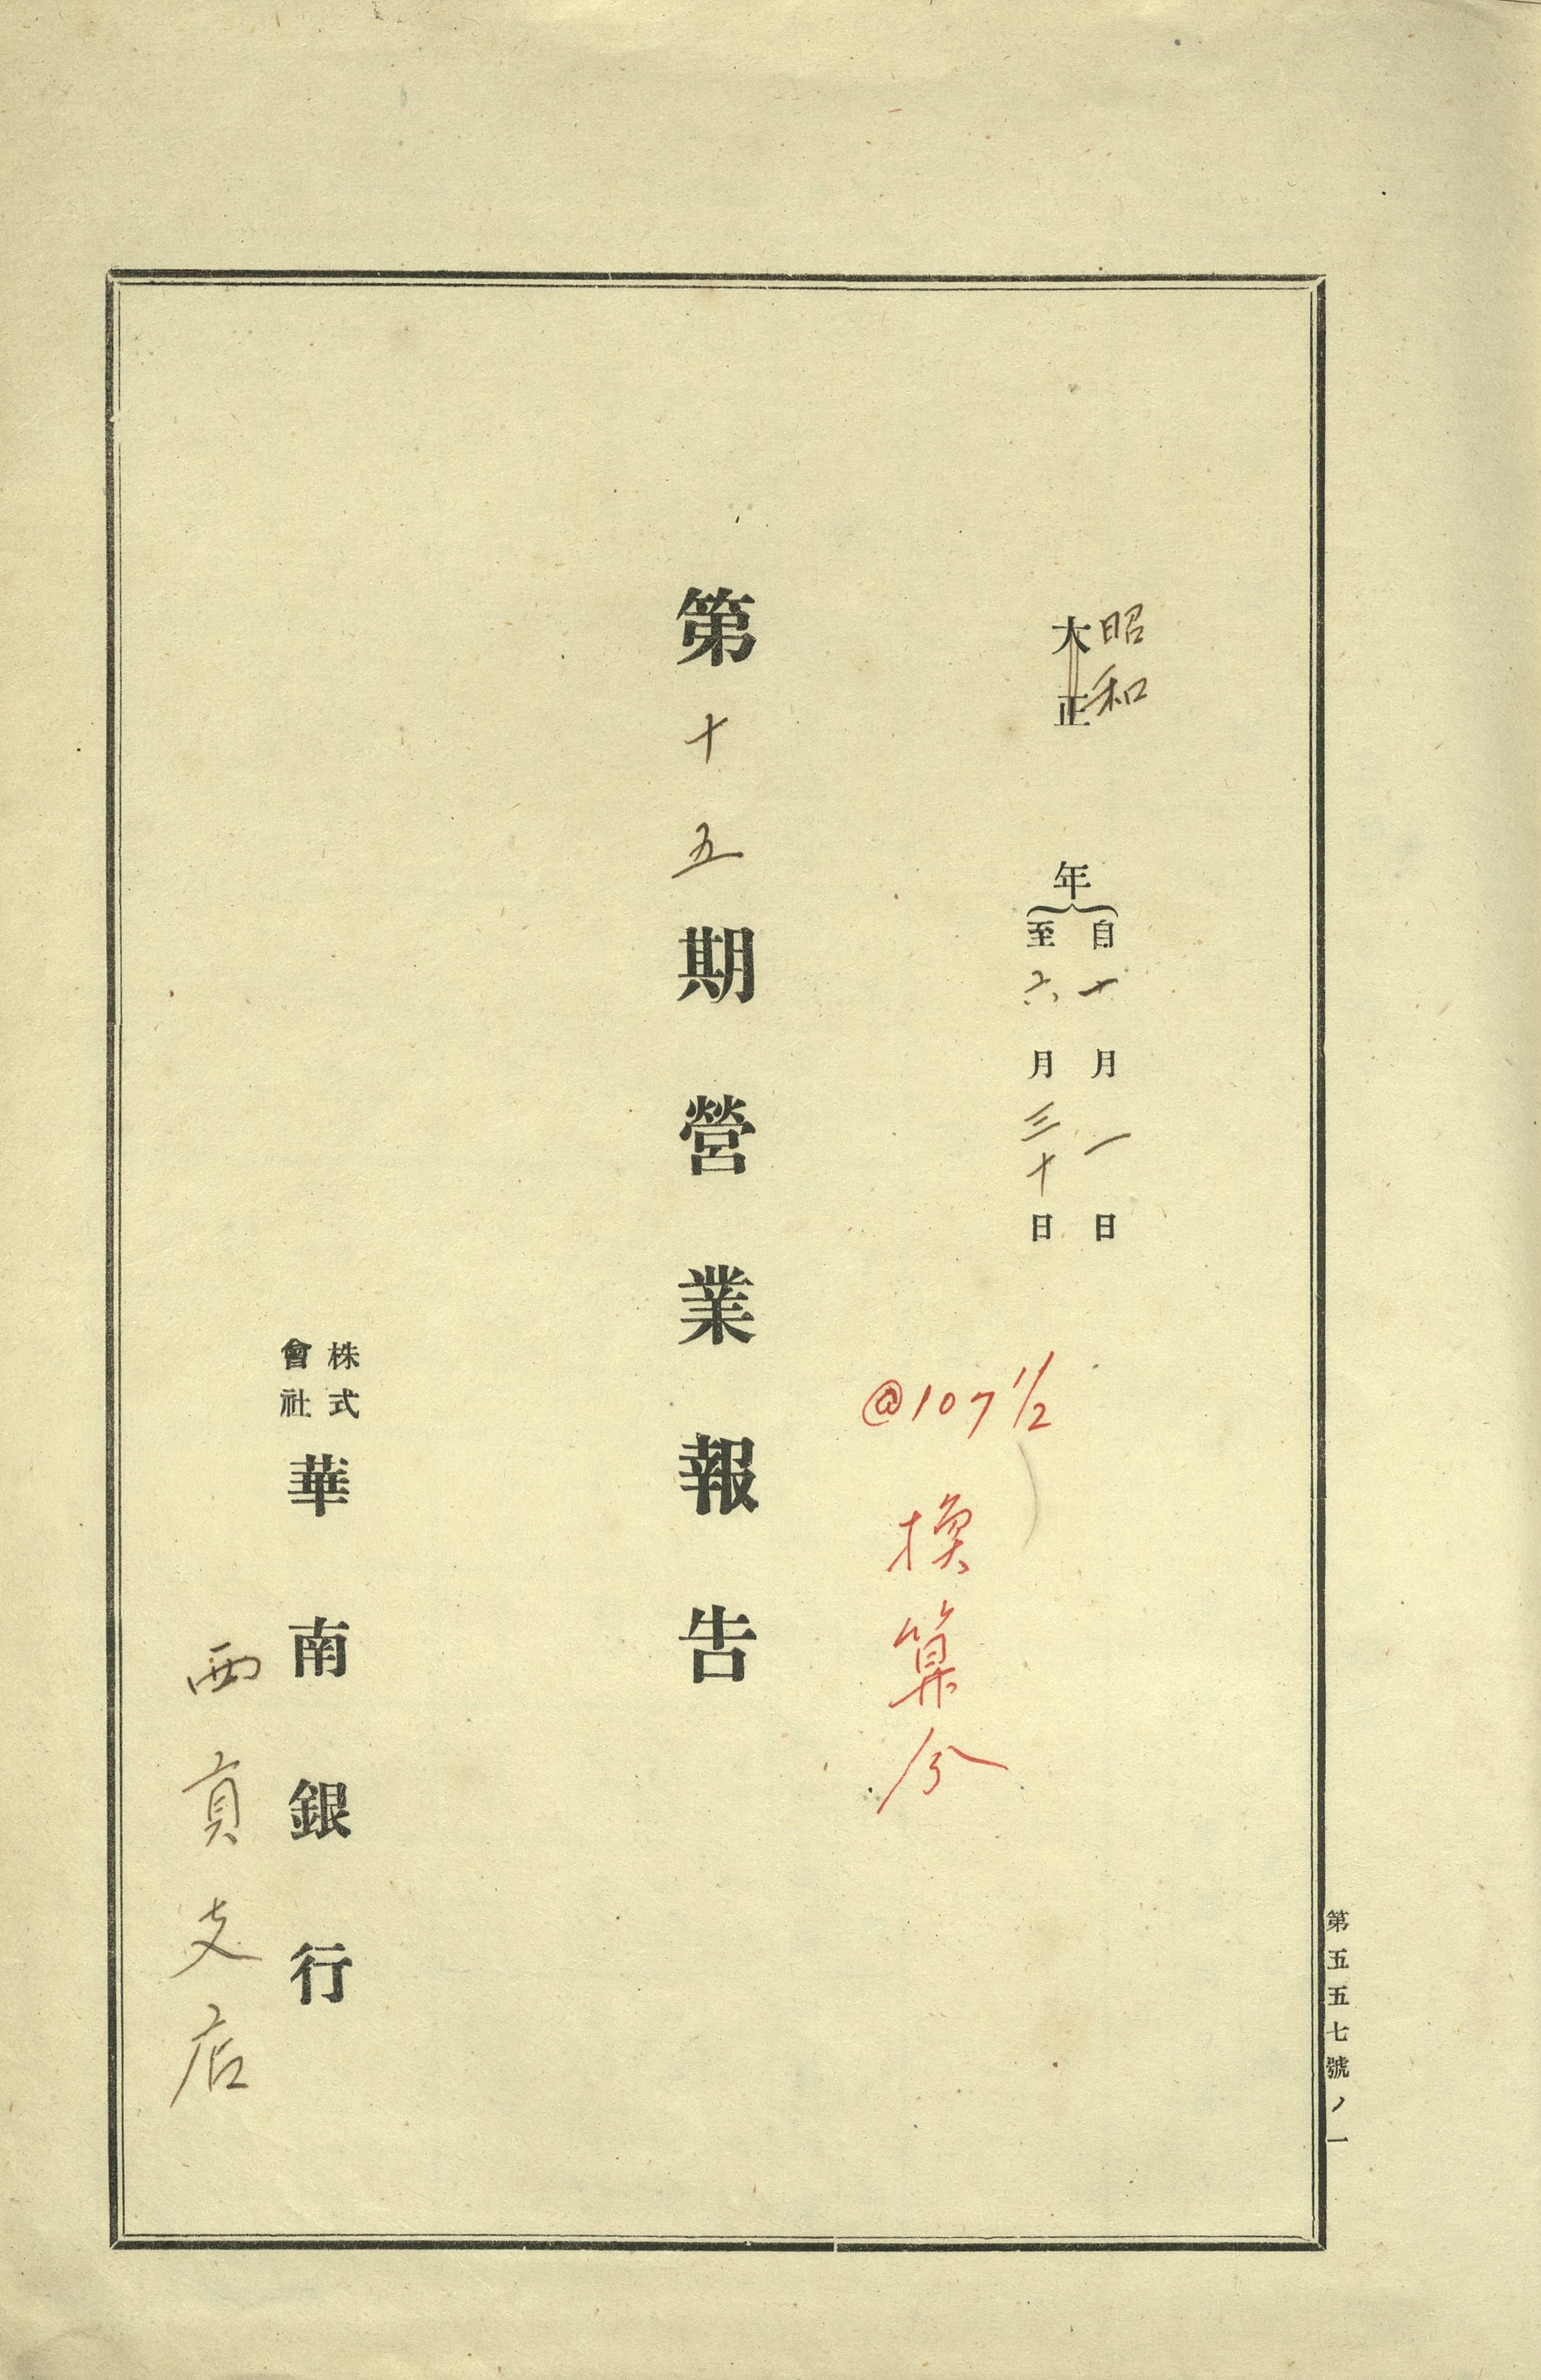 昭和
大正
年
自十月一日
至六月三十日
@107 1/2
換算分
第十五期營業報告
株式
會社
華南銀行
西貢支店
第五五七號ノ一